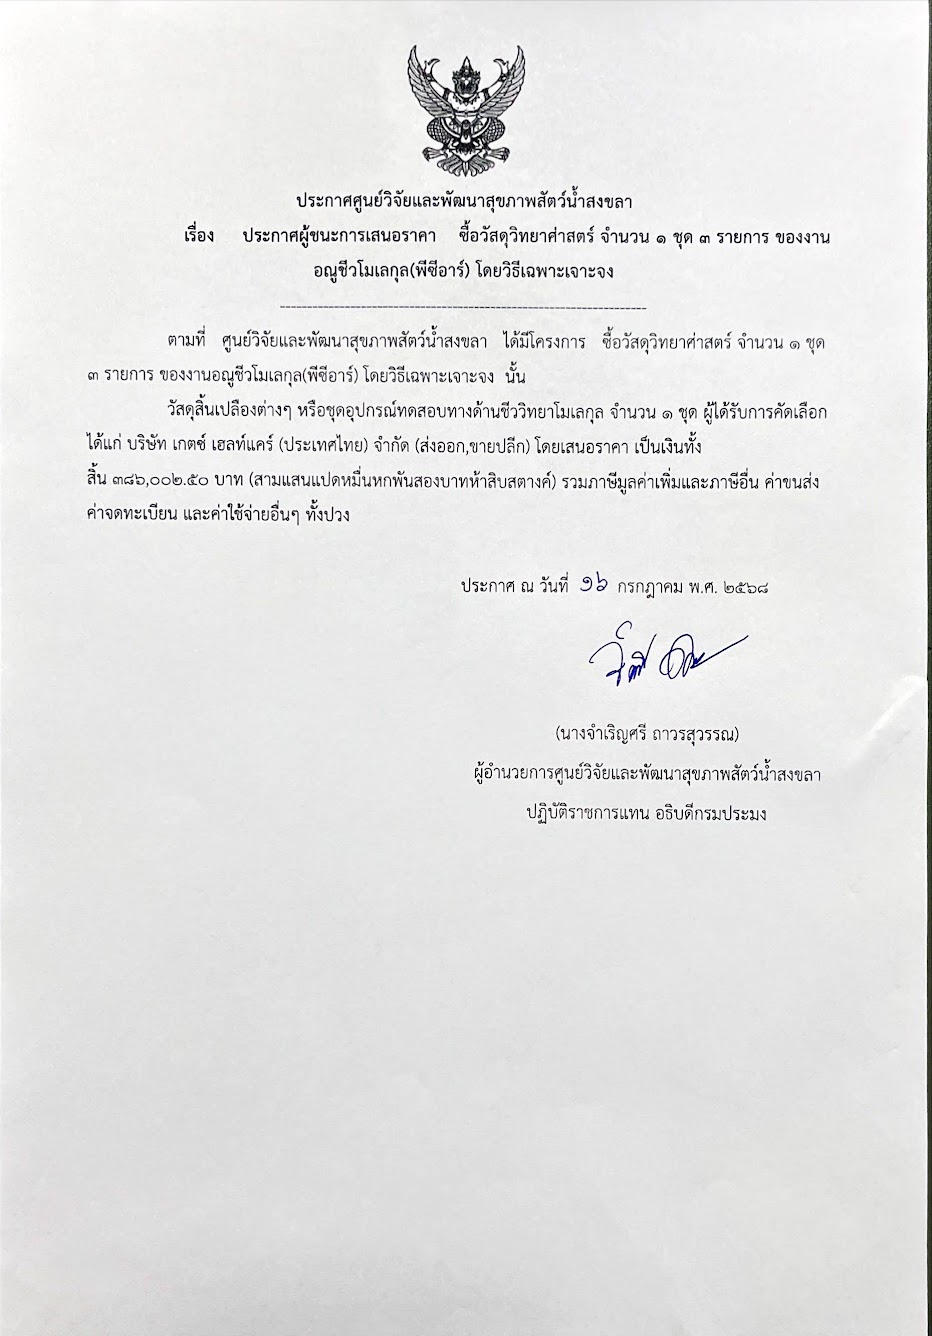 ประกาศศูนย์วิจัยและพัฒนาสุขภาพสัตว์น้ำสงขลา
เรื่อง ประกาศผู้ชนะการเสนอราคา ซื้อวัสดุวิทยาศ่าสตร์ จำนวน ๑ ชุด ๓ รายการ ของงาน
อณูชีวโมเลกุล(พีซีอาร์) โดยวิธีเฉพาะเจาะจง
--------------------------------------------------------------------
ตามที่ ศูนย์วิจัยและพัฒนาสุขภาพสัตว์น้ำสงขลา ได้มีโครงการ ซื้อวัสดุวิทยาศ่าสตร์ จำนวน ๑ ชุด
๓ รายการ ของงานอณูชีวโมเลกุล(พีซีอาร์) โดยวิธีเฉพาะเจาะจง นั้น
วัสดุสิ้นเปลืองต่างๆ หรือชุดอุปกรณ์ทดสอบทางด้านชีววิทยาโมเลกุล จำนวน ๑ ชุด ผู้ได้รับการคัดเลือก
ได้แก่ บริษัท เกตซ์ เฮลท์แคร์ (ประเทศไทย) จำกัด (ส่งออก,ขายปลีก) โดยเสนอราคา เป็นเงินทั้ง
สิ้น ๓๘๖,๐๐๒.๕๐ บาท (สามแสนแปดหมื่นหกพันสองบาทห้าสิบสตางค์) รวมภาษีมูลค่าเพิ่มและภาษีอื่น ค่าขนส่ง
ค่าจดทะเบียน และค่าใช้จ่ายอื่นๆ ทั้งปวง
ประกาศ ณ วันที่ ๑๖ กรกฎาคม พ.ศ. ๒๕๖๘
(นางจำเริญศรี ถาวรสุวรรณ)
ผู้อำนวยการศูนย์วิจัยและพัฒนาสุขภาพสัตว์น้ำสงขลา
ปฏิบัติราชการแทน อธิบดีกรมประมง